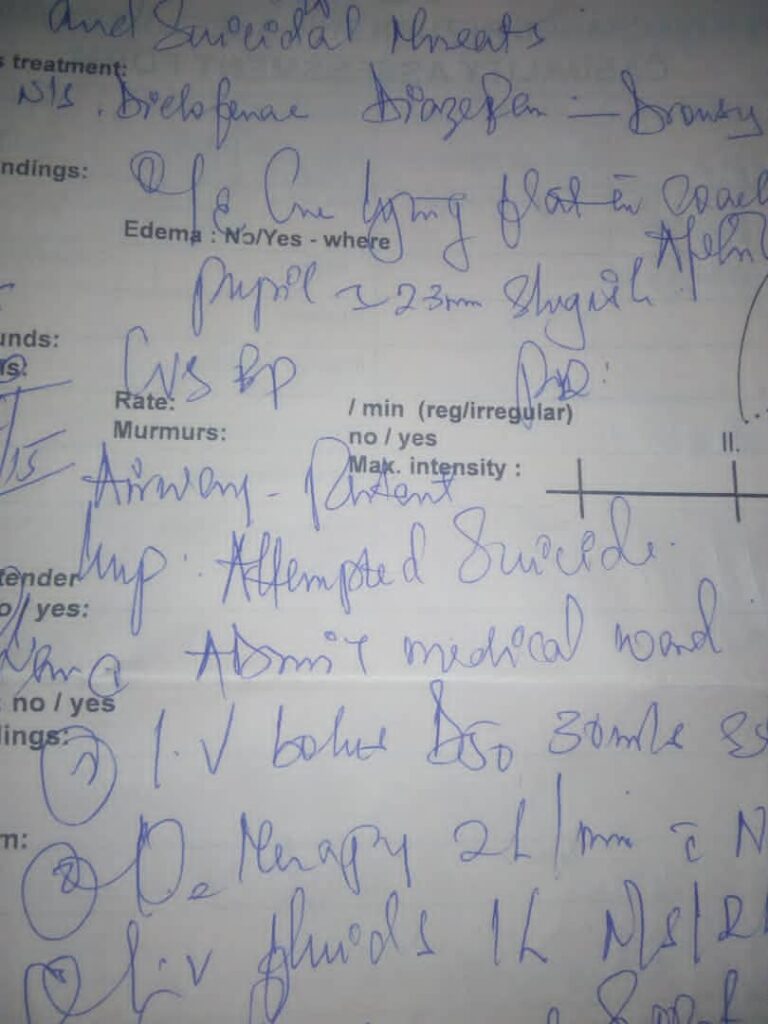 and Suicidal threats
s treatment:
N/S . Diclofenac Diazepam — Drowsy
ndings:
O/E lying flat in coach
Edema : No/Yes - where
Pupil 23mm Slugish
unds:
CVS BP
s:
Rate: / min (reg/irregular)
Murmurs: no / yes II.
Max. intensity :
15
Airway - Patent
Imp: Attempted Suicide.
tender
o / yes:
Admit medical ward
: no / yes
lings:
1 I.V bolus D50 30mls
m:
2 O2 therapy 2L/min c̄ N
I.V fluids 1L N/S/2